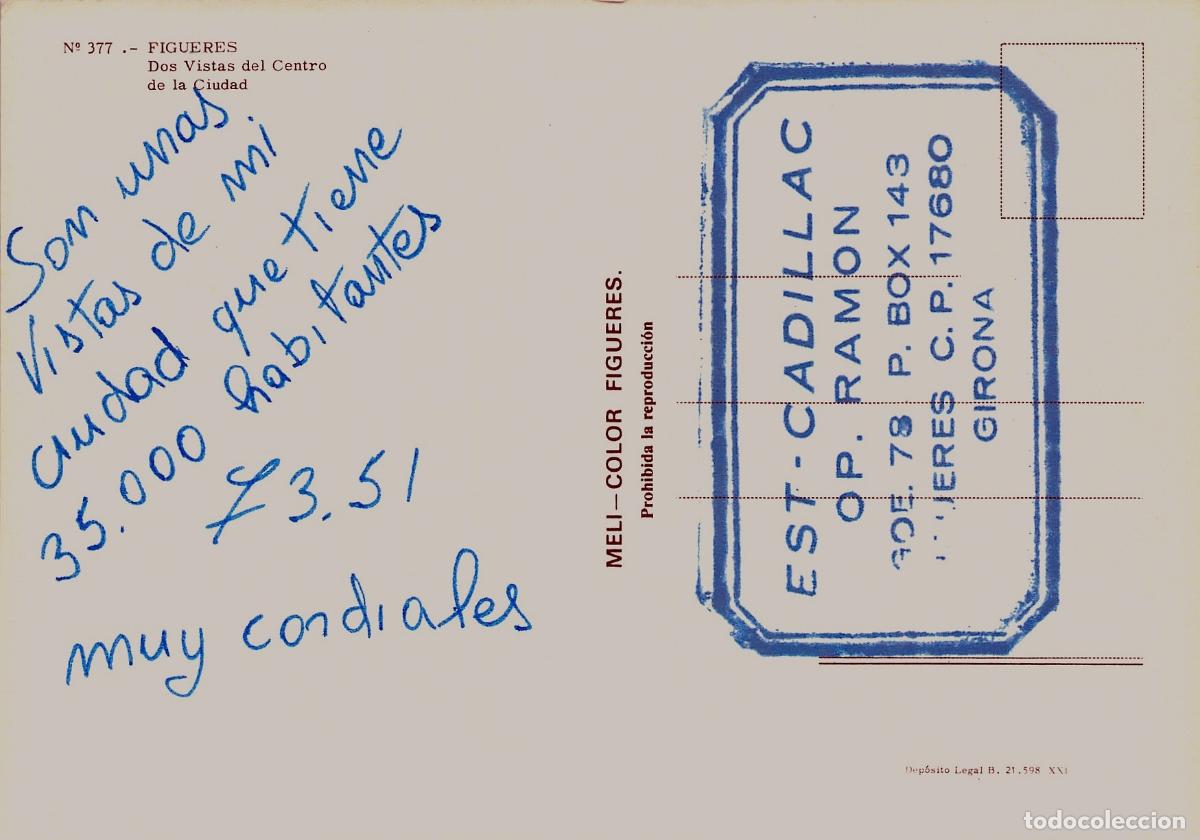 Nº 377 .- FIGUERES
Dos Vistas del Centro
de la Ciudad
Son unas
vistas de mi
ciudad que tiene
35.000 habitantes
73.51
muy cordiales
MELI—COLOR FIGUERES.
Prohibida la reproducción
EST-CADILLAC
OP. RAMON
78 P. BOX 143
C.P. 17680
GIRONA
Depósito Legal B. 21.598 XXI
todocoleccion